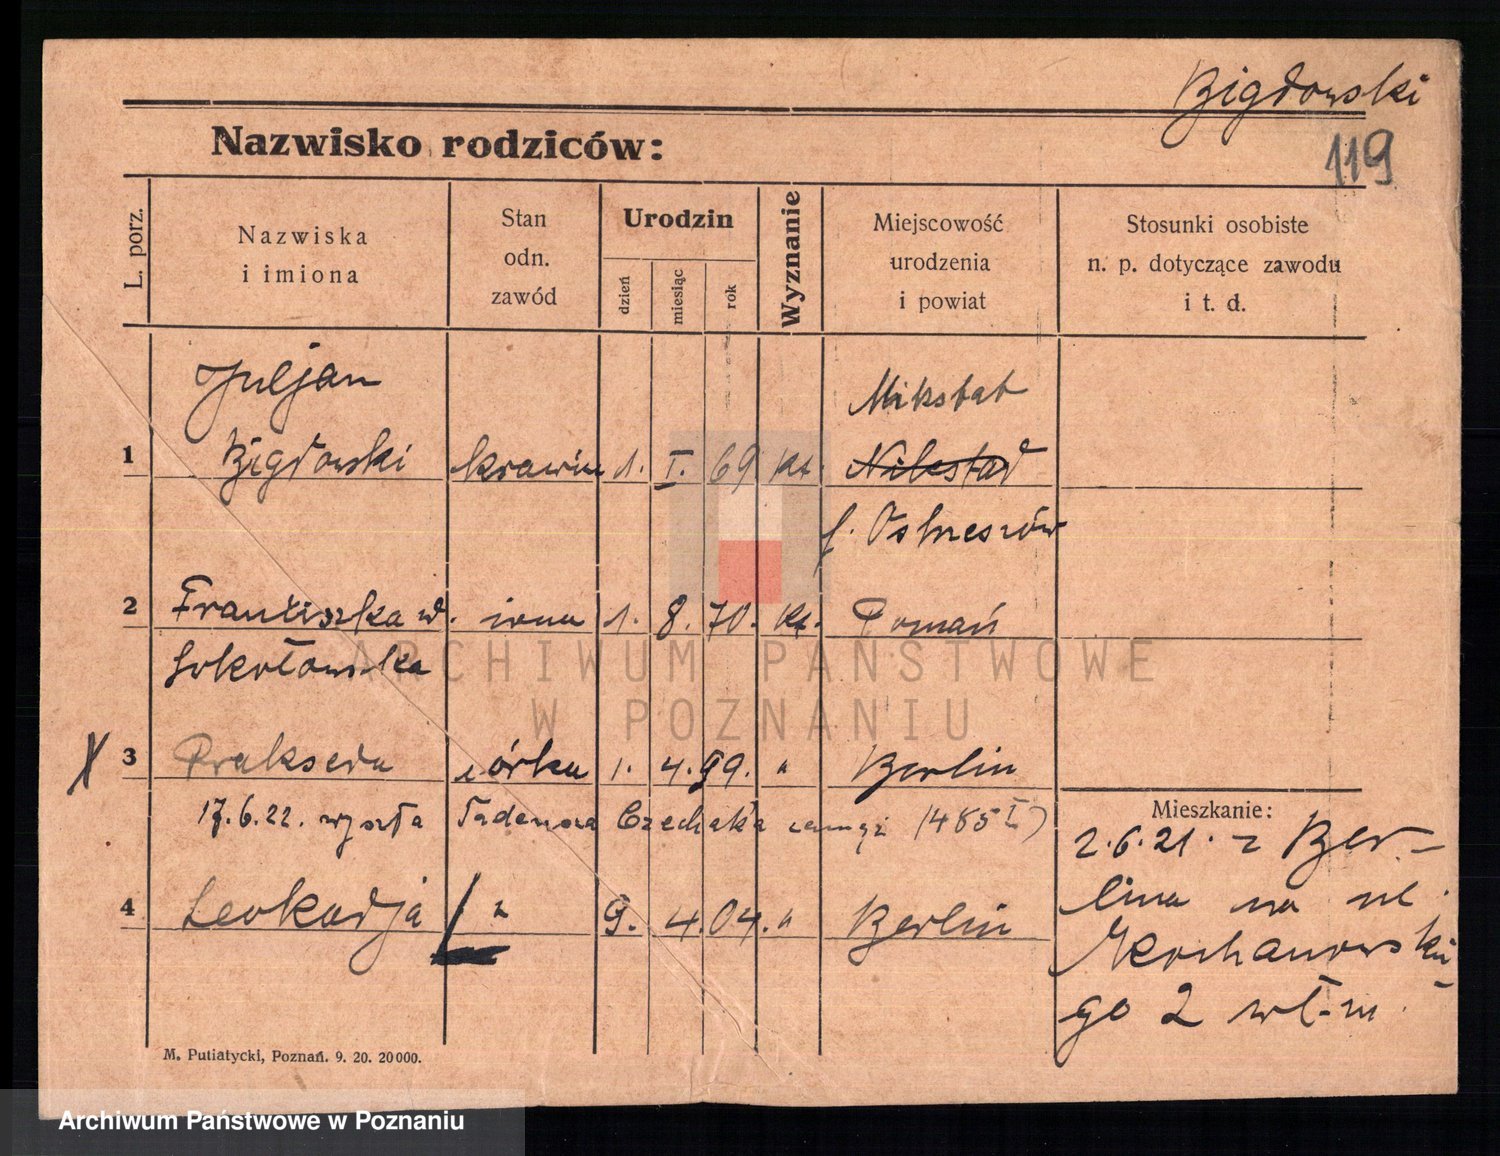 Bigdowski
119
Nazwisko rodziców:
L. porz.
Nazwiska
i imiona
Stan
odn.
zawód
Urodzin
dzień
miesiąc
rok
Wyznanie
Miejscowość
urodzenia
i powiat
Stosunki osobiste
n. p. dotyczące zawodu
i t. d.
Juljan
Mikstat
1 Bigdowski krawiec 1. I. 69 kt. Nikstad
Ostrzeszów
2 Franciszka żona 1. 8. 70. kt. Poznań
Sokołowska
X 3 Prakseda córka 1. 4. 99. " Berlin
17.6.22. wyszła Tadeusza Czechaka zamąż (485 I)
4 Leokadja " 9. 4. 04. " Berlin
Mieszkanie:
2.6.21. z Ber-
lina na ul.
Kochanowskie-
go 2 wł-m.
M. Putiatycki, Poznań. 9. 20. 20000.
ARCHIWUM PAŃSTWOWE
W POZNANIU
Archiwum Państwowe w Poznaniu